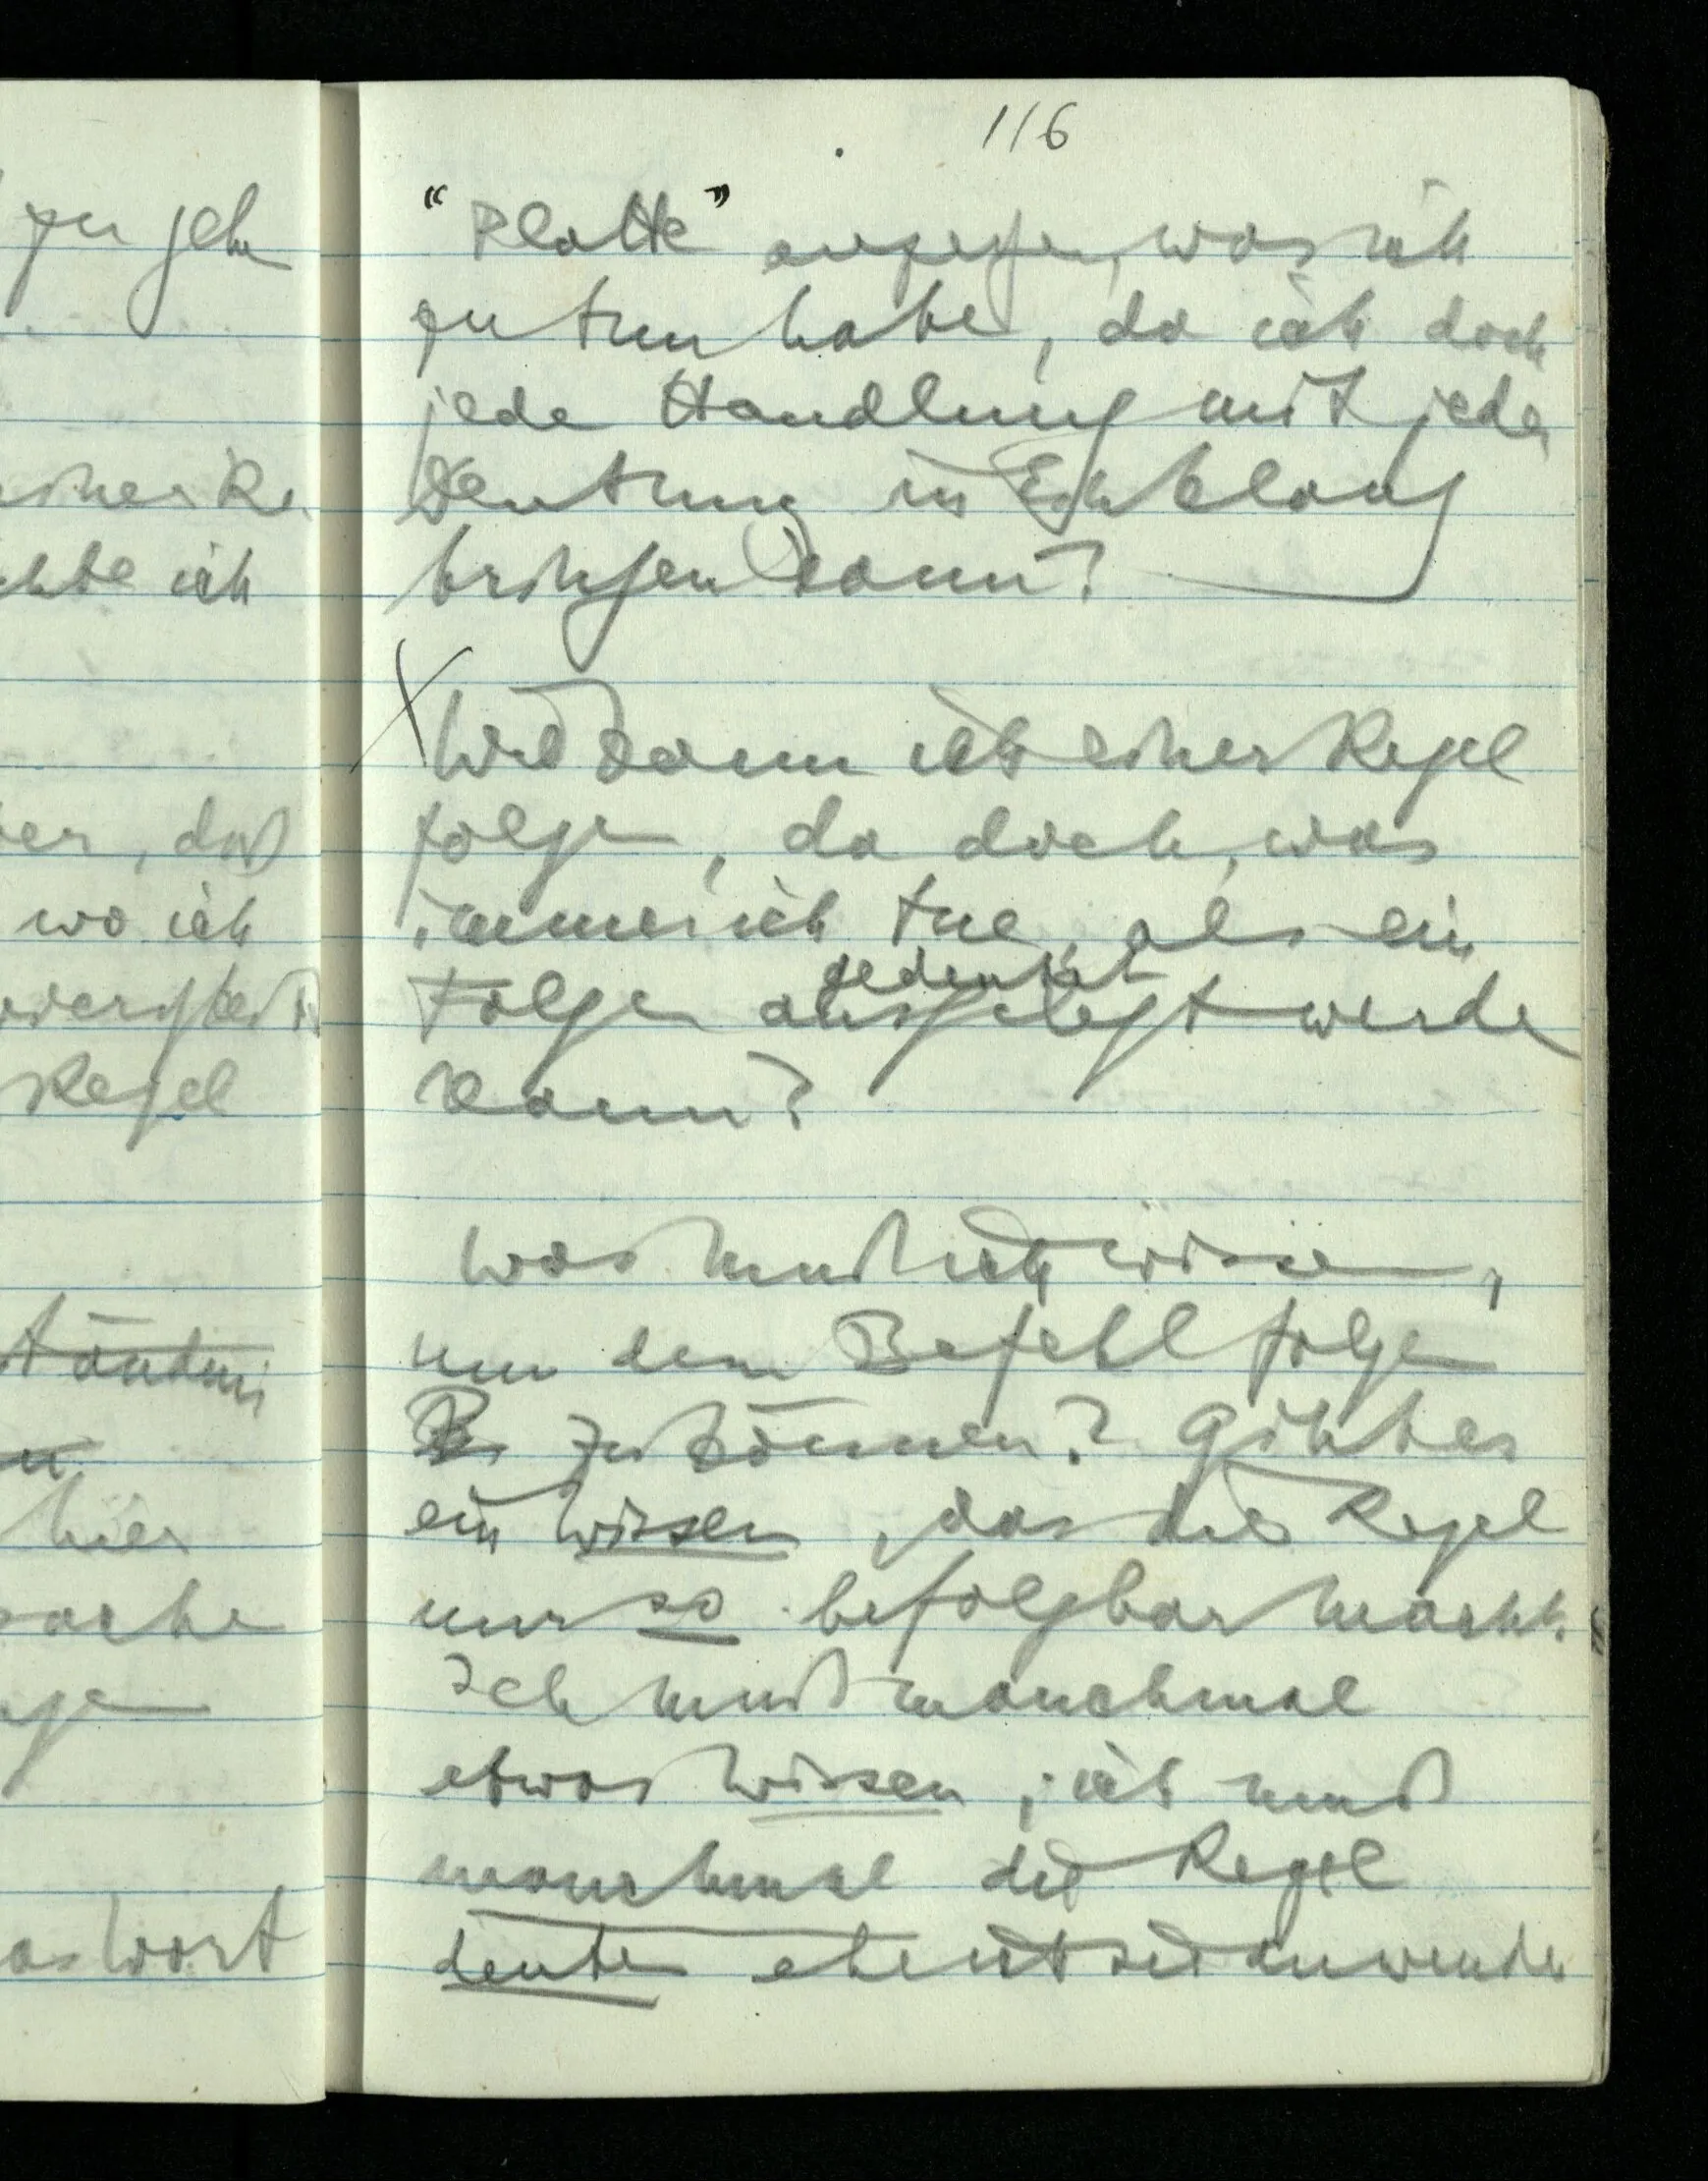 116
"Platte" anzeigen, was ich
zu tun habe, da ich doch
jede Handlung mit jeder
Deutung in Einklang
bringen kann?
Wie kann ich einer Regel
folgen, da doch, was
immer ich tue, als ein
gedeutet
Folgen ausgelegt werden
kann?
Was muß ich wissen,
um dem Befehl folgen
zu können? Gibt es
ein Wissen, das die Regel
nur so befolgbar macht.
Ich muß manchmal
etwas wissen, ich muß
manchmal die Regel
deuten ehe ich sie anwende
zu gehen
einer Re
chte ich
er, daß
wo ich
Regel
ständnis
hier
ache
as Wort